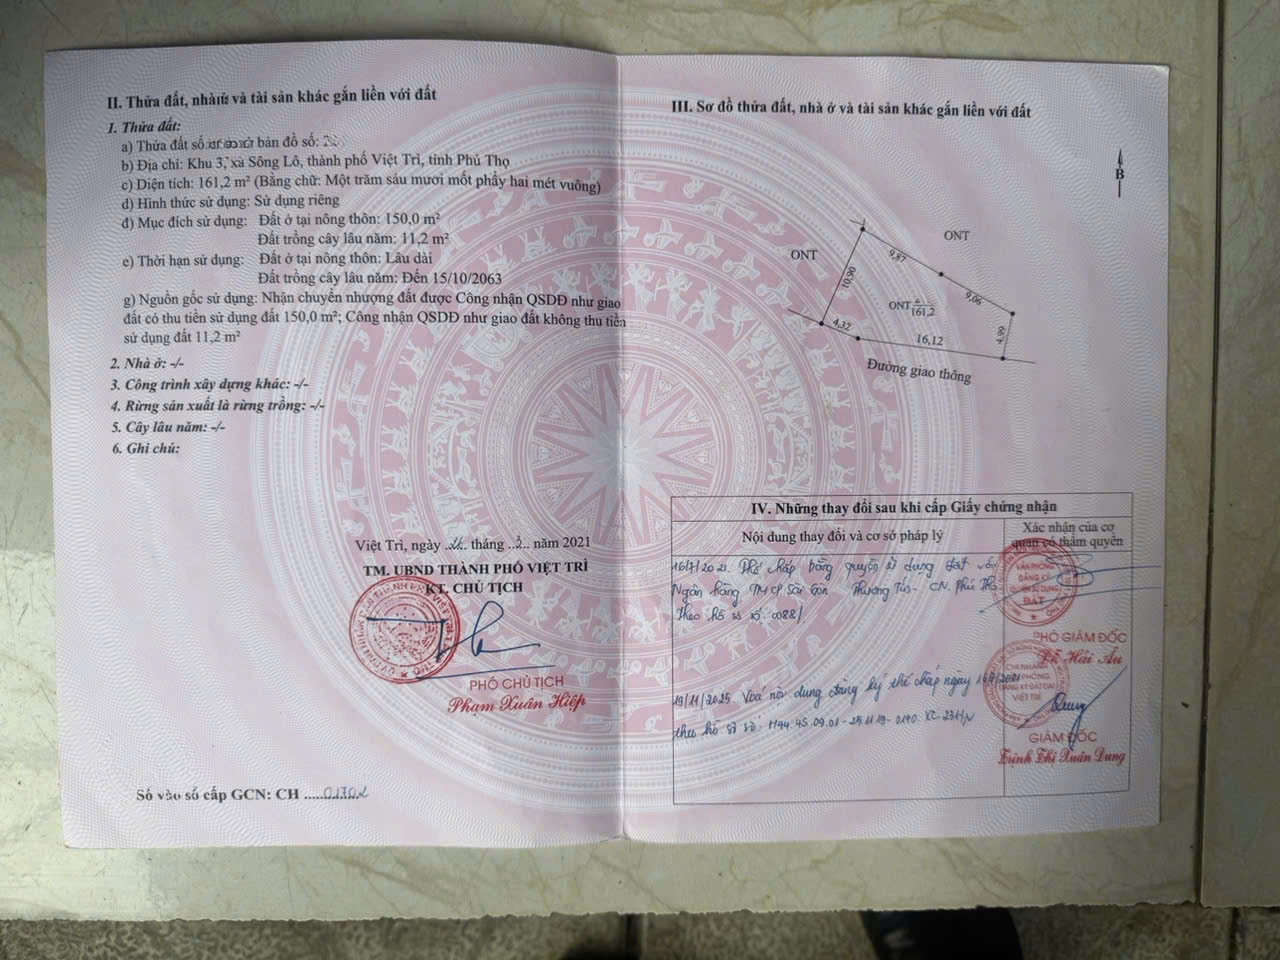 II. Thửa đất, nhà ở và tài sản khác gắn liền với đất
1. Thửa đất:
a) Thửa đất số: bản đồ số:
b) Địa chỉ: Khu 3, xã Sông Lô, thành phố Việt Trì, tỉnh Phú Thọ
c) Diện tích: 161,2 m² (Bằng chữ: Một trăm sáu mươi mốt phẩy hai mét vuông)
d) Hình thức sử dụng: Sử dụng riêng
đ) Mục đích sử dụng: Đất ở tại nông thôn: 150,0 m²
Đất trồng cây lâu năm: 11,2 m²
e) Thời hạn sử dụng: Đất ở tại nông thôn: Lâu dài
Đất trồng cây lâu năm: Đến 15/10/2063
g) Nguồn gốc sử dụng: Nhận chuyển nhượng đất được Công nhận QSDĐ như giao
đất có thu tiền sử dụng đất 150,0 m²; Công nhận QSDĐ như giao đất không thu tiền
sử dụng đất 11,2 m²
2. Nhà ở: -/-
3. Công trình xây dựng khác: -/-
4. Rừng sản xuất là rừng trồng: -/-
5. Cây lâu năm: -/-
6. Ghi chú:
Việt Trì, ngày tháng ..2.. năm 2021
TM. UBND THÀNH PHỐ VIỆT TRÌ
KT. CHỦ TỊCH
PHÓ CHỦ TỊCH
Phạm Xuân Hiệp
Số vào sổ cấp GCN: CH .....01702
III. Sơ đồ thửa đất, nhà ở và tài sản khác gắn liền với đất
B
ONT
ONT
9,87
10,90
9,06
ONT
161,2
4,99
4,32
16,12
Đường giao thông
IV. Những thay đổi sau khi cấp Giấy chứng nhận
Nội dung thay đổi và cơ sở pháp lý
Xác nhận của cơ
quan có thẩm quyền
16/7/2021. Thế chấp bằng quyền sử dụng đất với
Ngân hàng TMCP Sài Gòn Thương Tín - CN. Phú Thọ
theo hồ sơ số: 0088/
VĂN PHÒNG
ĐĂNG KÝ
QUYỀN SỬ DỤNG
ĐẤT
PHÓ GIÁM ĐỐC
Lê Hải Âu
19/11/2025. Xoá nội dung đăng ký thế chấp ngày 16/7/2021
theo hồ sơ số: H44.45.09.01-251119-0140.
CHI NHÁNH
VĂN PHÒNG
ĐĂNG KÝ ĐẤT ĐAI
VIỆT TRÌ
Dung
GIÁM ĐỐC
Trịnh Thị Xuân Dung